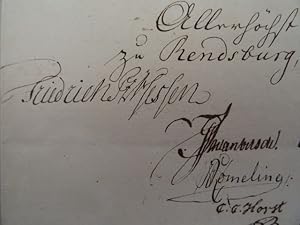 Allerhöchst
zu Rendsburg,
Friedrich
Römeling
C. C. Horst